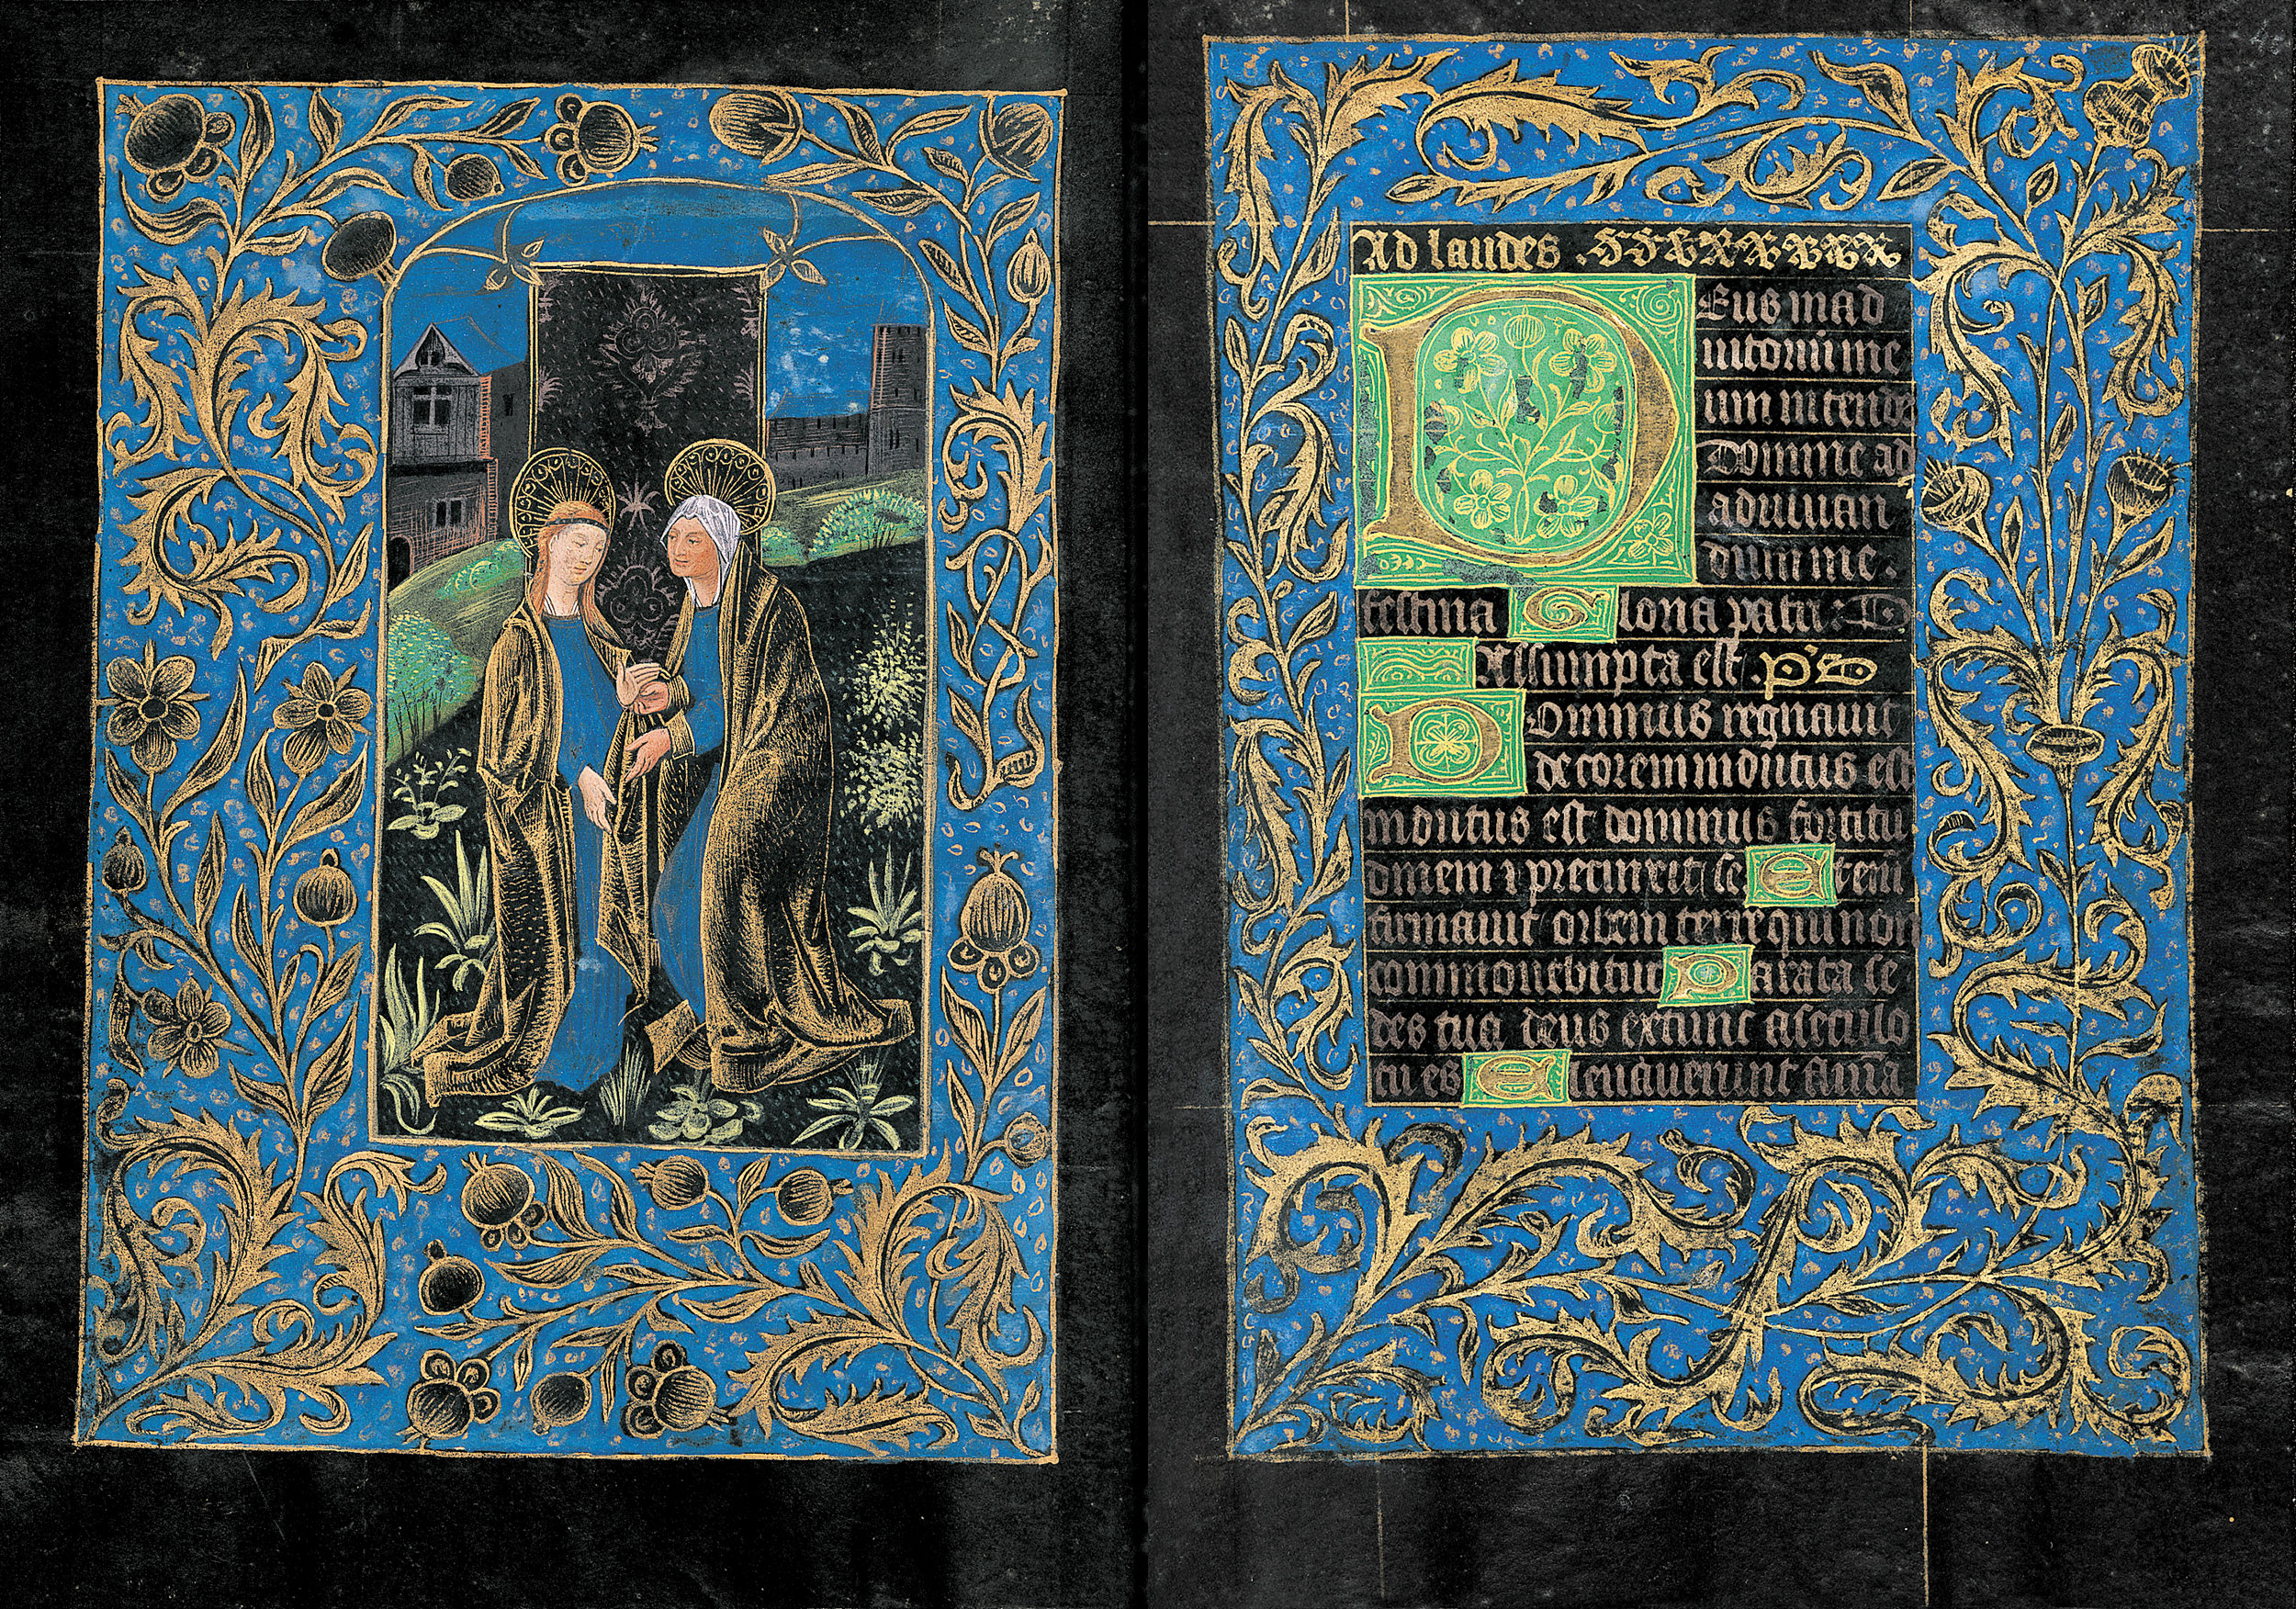 Ad laudes
Deus in ad
iutoriū me
um intende
Domine ad
adiuuan
dum me.
festina Gloria patri:
Assumpta est. pˢ
Dominus regnauit
decorem indutus est
indutus est dominus fortitu
dinem ⁊ precinxit se Eteni
firmauit orbem terre qui non
commouebitur Parata se
des tua deus extunc a seculo
tu es Eleuauerunt flumīa